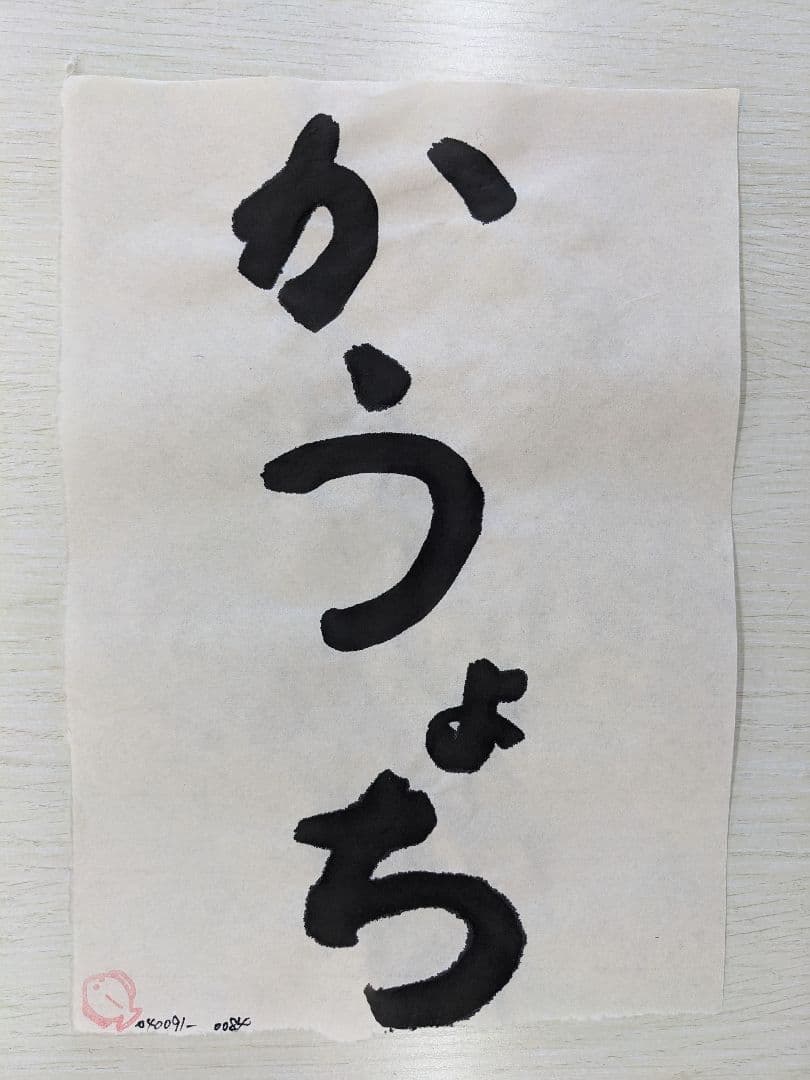 かうょち
040091- 0084